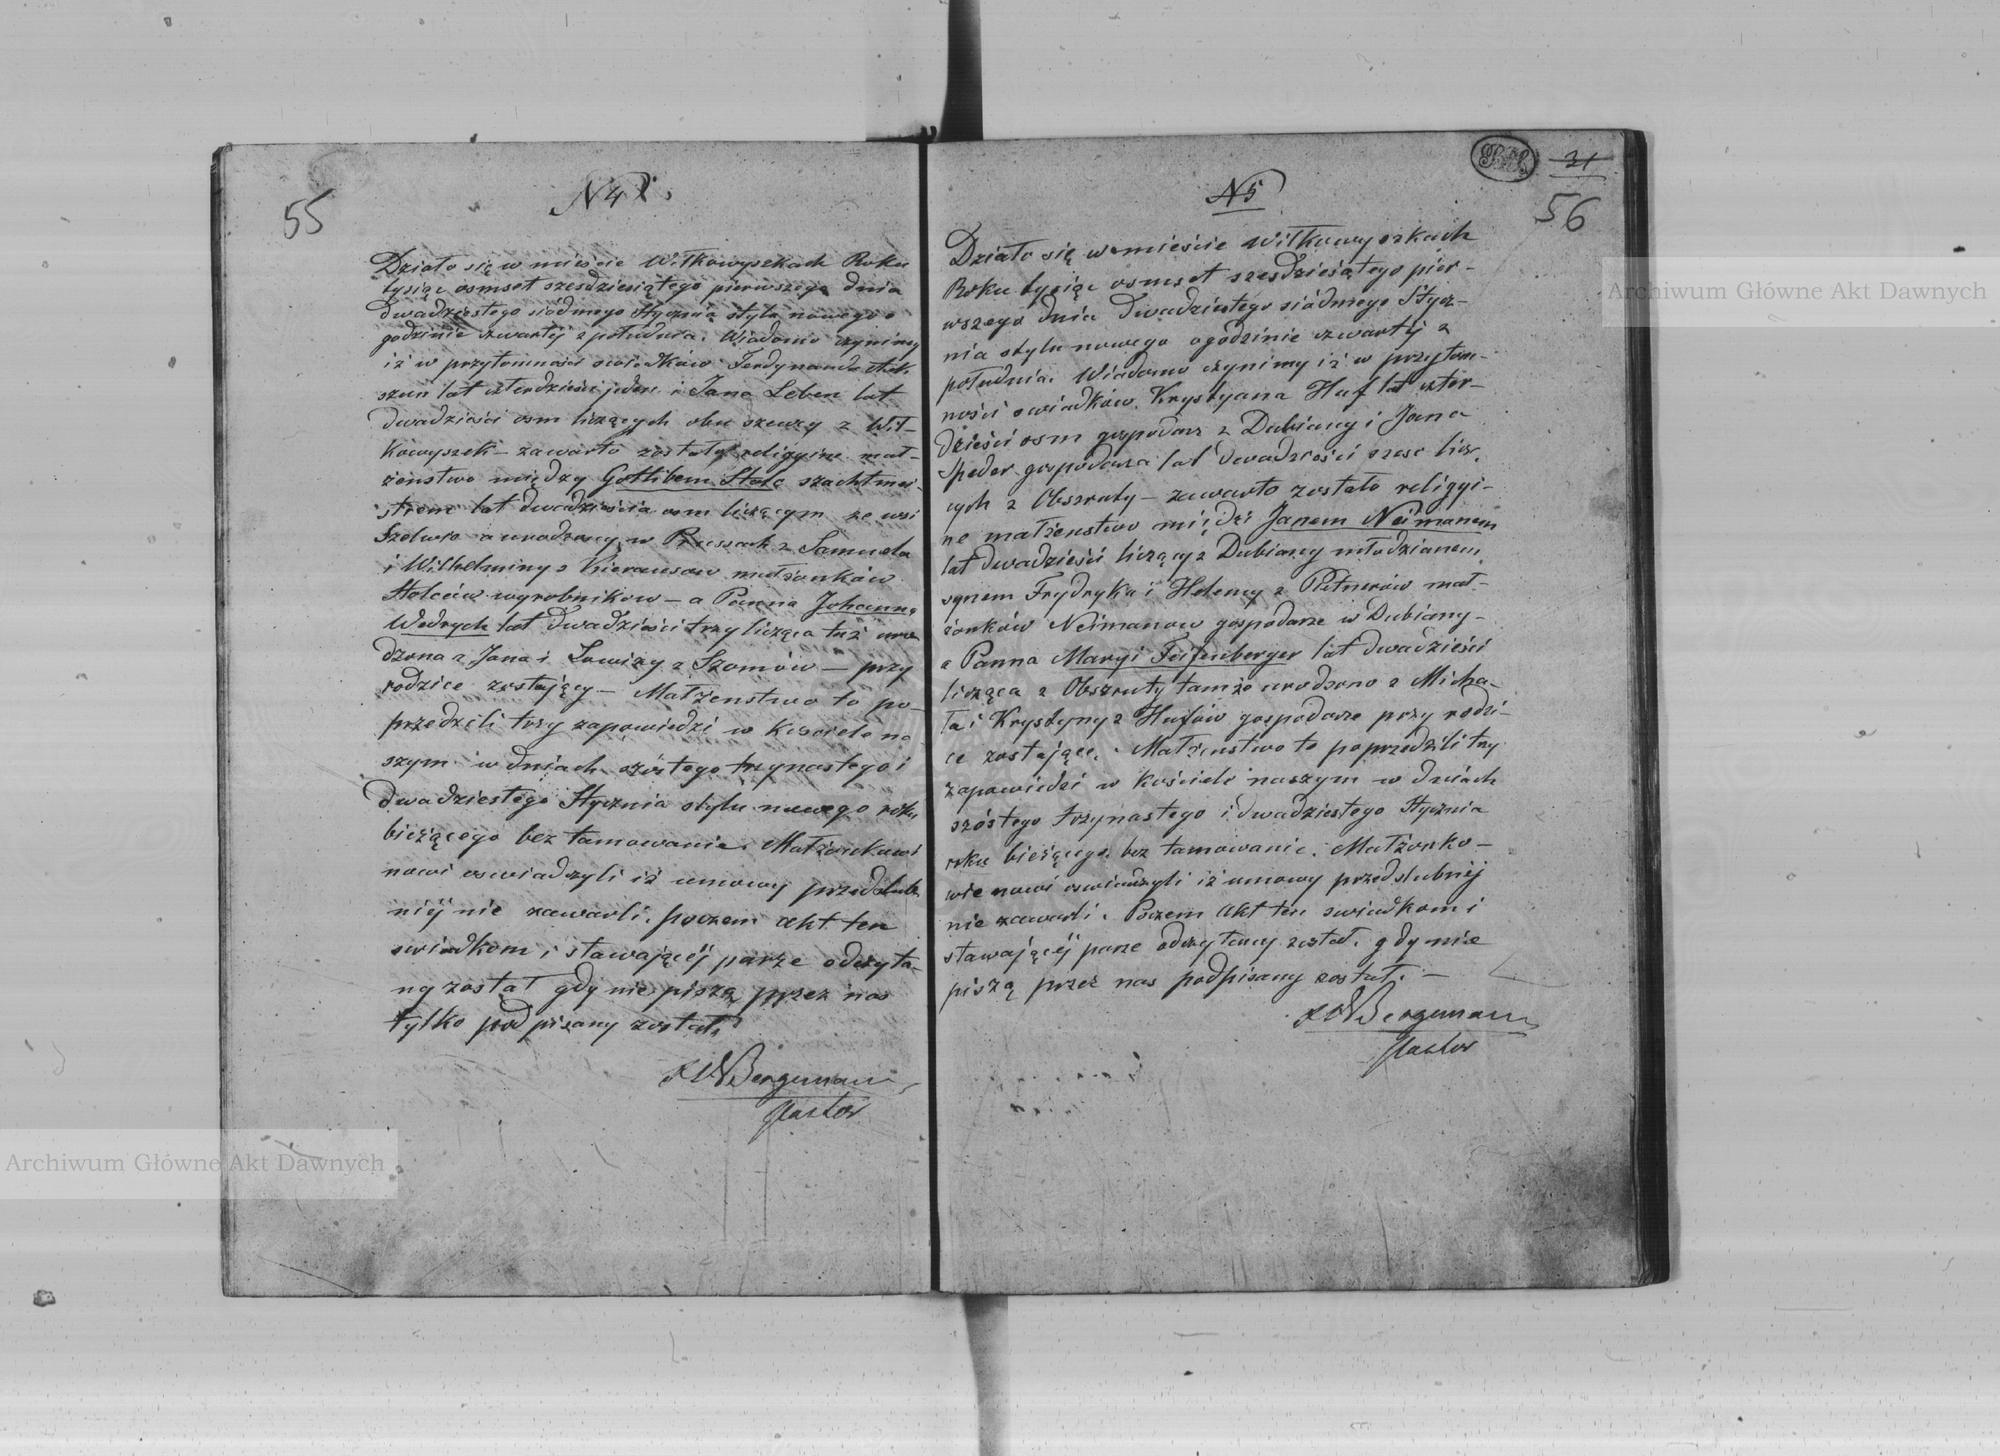 55
N 4
Działo się w mieście Wiłkowyszkach Roku
tysiąc osmset szesdziesiątego pierwszego dnia
dwadziestego siódmego Stycznia stylu nowego o
godzinie czwartej z południa. Wiadomo czynimy
iż w przytomności swiadków Ferdynanda
szun lat czterdzieści jeden i Jana Leben lat
dwadzieści osm liczących obu szewcy z Wił-
kowyszek – zawarte zostały religyine mał-
żenstwo między Gottlibem Stolc szachtmei-
strem lat dwadzieścia osm liczącym ze wsi
a urodzony w Prussach z Samuela
i Wilhelminy z małżonków
Stolców wyrobników – a Panna Johanna
Wedrych lat dwadzieści trzy licząca też uro-
dzona z Jana i Lowizy z Szomów – przy
rodzice zostający – Małżenstwo to po-
przedzili trzy zapowiedzi w Kosciele na
szym w dniach szóstego trzynastego i
dwadziestego Stycznia stylu nowego roku
bieżącego bez tamowanie. Małżonkowi
nowi oswiadczyli iż umowy przedslub-
néj nie zawarli. poczem akt ten
swiadkom i stawającéj parze odczyta-
ny został gdy nie piszą przez nas
tylko podpisany został.
Bergmann
Pastor
31
56
N 5
Działo się w mieście Wiłkowyszkach
Roku tysiąc osmset szesdziesiątego pier-
wszego dnia dwadziestego siódmego Stycz-
nia stylu nowego o godzinie czwartéj z
południa. Wiadomo czynimy iż w przytom-
ności swiadków Krystyana Huf lat czter-
dzieści osm gospodarz z Dubiany i Jana
Speder gospodarza lat dwadzieści szesc licz.
cych z Obszruty – zawarto zostało religyi-
ne małżenstwo między Janem Neimanem
lat dwadzieści liczący z Dubiany młodzianem
synem Frydryka i Heleny z Pletnerów mał-
żonków Neimanow gospodarze w Dubiany –
a Panna Maryi Feifenberger lat dwadzieści
licząca z Obszruty tamże urodzono z Micha-
ła i Krystyny z Hufów gospodarze przy rodzi-
ce zostające. Małżenstwo to poprzedzili trzy
zapowiedzi w kościele naszym w dniach
szóstego trzynastego i dwadziestego Stycznia
roku bieżącego bez tamowanie. Małżonko-
wie nowi oswiadczyli iż umowy przedslubnéj
nie zawarli. Poczem akt ten swiadkom i
stawającéj parze odczytany został. gdy nie
piszą przez nas podpisany został. –
Bergmann
Pastor
Archiwum Główne Akt Dawnych
Archiwum Główne Akt Dawnych